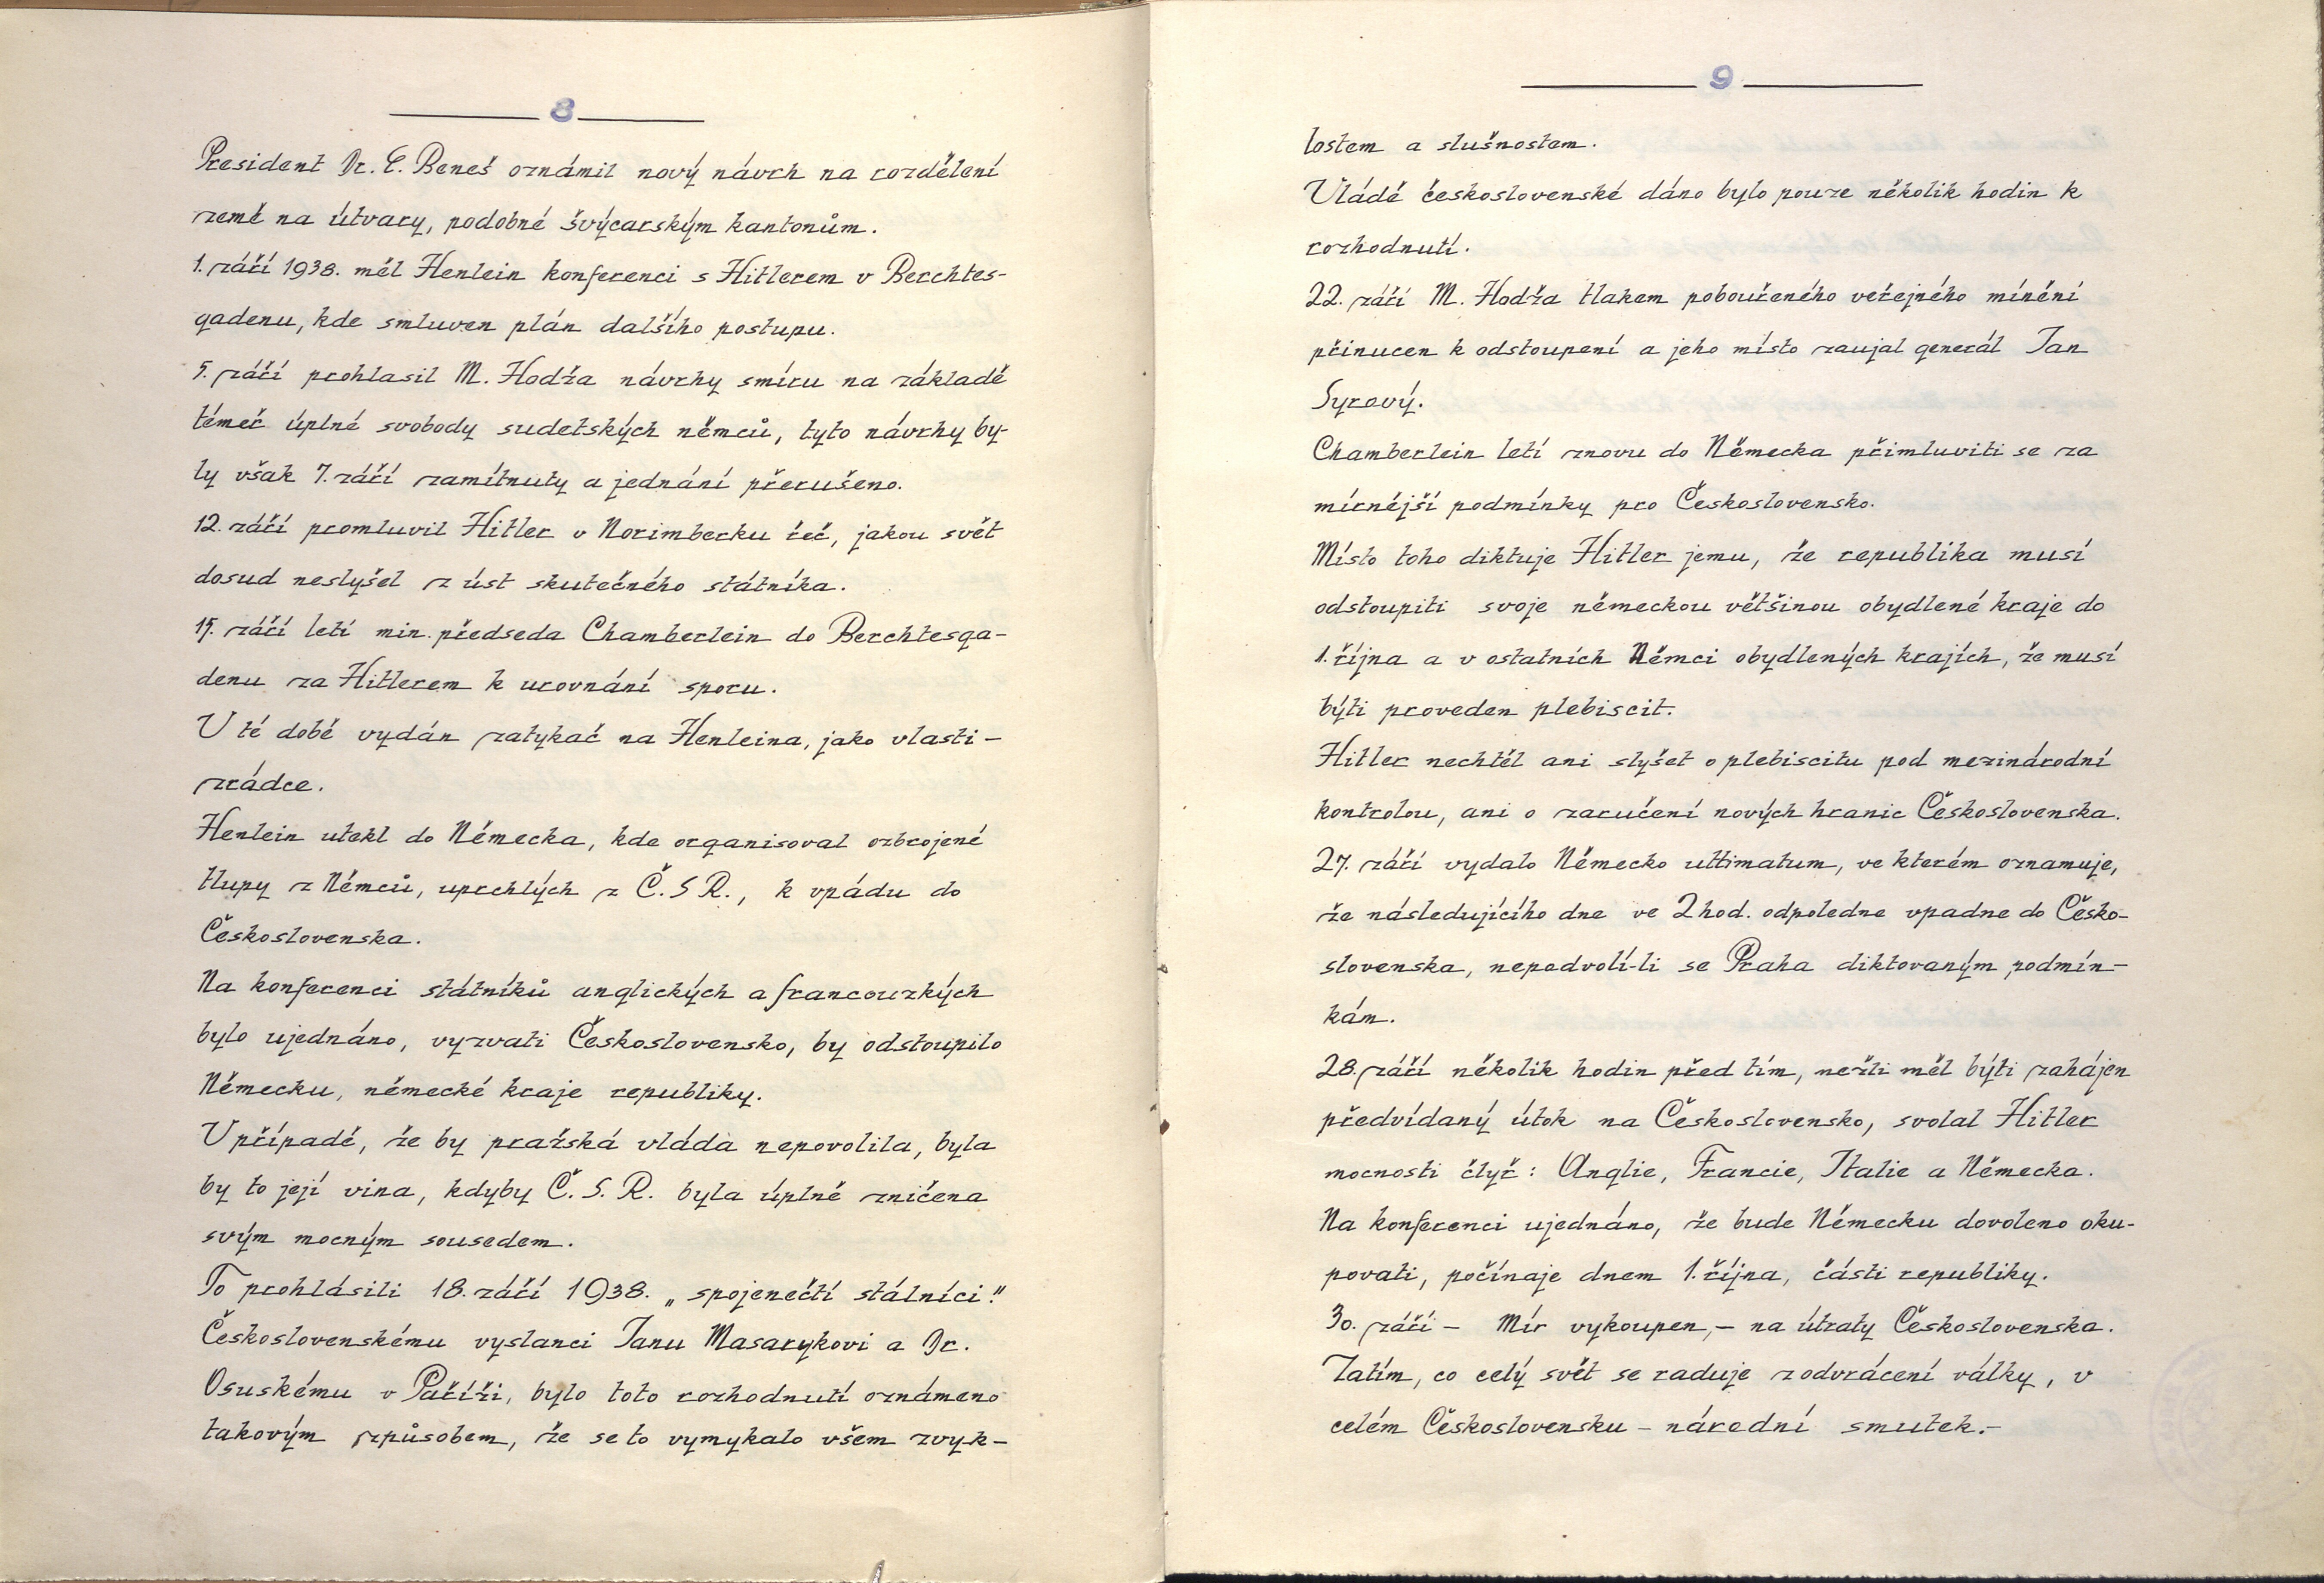 8
President Dr. E. Beneš oznámil nový návrh na rozdělení
země na útvary, podobné švýcarským kantonům.
1. září 1938. měl Henlein konferenci s Hitlerem v Berchtes-
gadenu, kde smluven plán dalšího postupu.
5. září prohlasil M. Hodža návrhy smíru na základě
téměř úplné svobody sudetských němců, tyto návrhy by-
ly však 7. září zamítnuty a jednání přerušeno.
12. září promluvil Hitler v Norimberku řeč, jakou svět
dosud neslyšel z úst skutečného státníka.
15. září letí min. předseda Chamberlein do Berchtesga-
denu za Hitlerem k urovnání sporu.
V té době vydán zatykač na Henleina, jako vlasti-
zrádce.
Henlein utekl do Německa, kde organisoval ozbrojené
tlupy z Němců, uprchlých z Č.S R., k vpádu do
Československa.
Na konferenci státníků anglických a francouzkých
bylo ujednáno, vyzvati Československo, by odstoupilo
Německu, německé kraje republiky.
V případě, že by pražská vláda nepovolila, byla
by to její vina, kdyby Č. S. R. byla úplně zničena
svým mocným sousedem.
To prohlásili 18. září 1938. „spojenečtí státníci."
Československému vyslanci Janu Masarykovi a Dr.
Osuskému v Paříži, bylo toto rozhodnutí oznámeno
takovým způsobem, že se to vymykalo všem zvyk-
9
lostem a slušnostem.
Vládě československé dáno bylo pouze několik hodin k
rozhodnutí.
22. září M. Hodža tlakem pobouřeného veřejného mínění
přinucen k odstoupení a jeho místo zaujal generál Jan
Syrový.
Chamberlein letí znovu do Německa přimluviti se za
mírnější podmínky pro Československo.
Místo toho diktuje Hitler jemu, že republika musí
odstoupiti svoje německou většinou obydlené kraje do
1. října a v ostatních Němci obydlených krajích, že musí
býti proveden plebiscit.
Hitler nechtěl ani slyšet o plebiscitu pod mezinárodní
kontrolou, ani o zaručení nových hranic Československa.
27. září vydalo Německo ultimatum, ve kterém oznamuje,
že následujícího dne ve 2 hod. odpoledne vpadne do Česko-
slovenska, nepodvolí-li se Praha diktovaným podmín-
kám.
28. září několik hodin před tím, nežli měl býti zahájen
předvídaný útok na Československo, svolal Hitler
mocnosti čtyř: Anglie, Francie, Italie a Německa.
Na konferenci ujednáno, že bude Německu dovoleno oku-
povati, počínaje dnem 1. října, části republiky.
30. září - Mír vykoupen, - na útraty Československa.
Zatím, co celý svět se raduje z odvrácení války, v
celém Československu - národní smutek.-